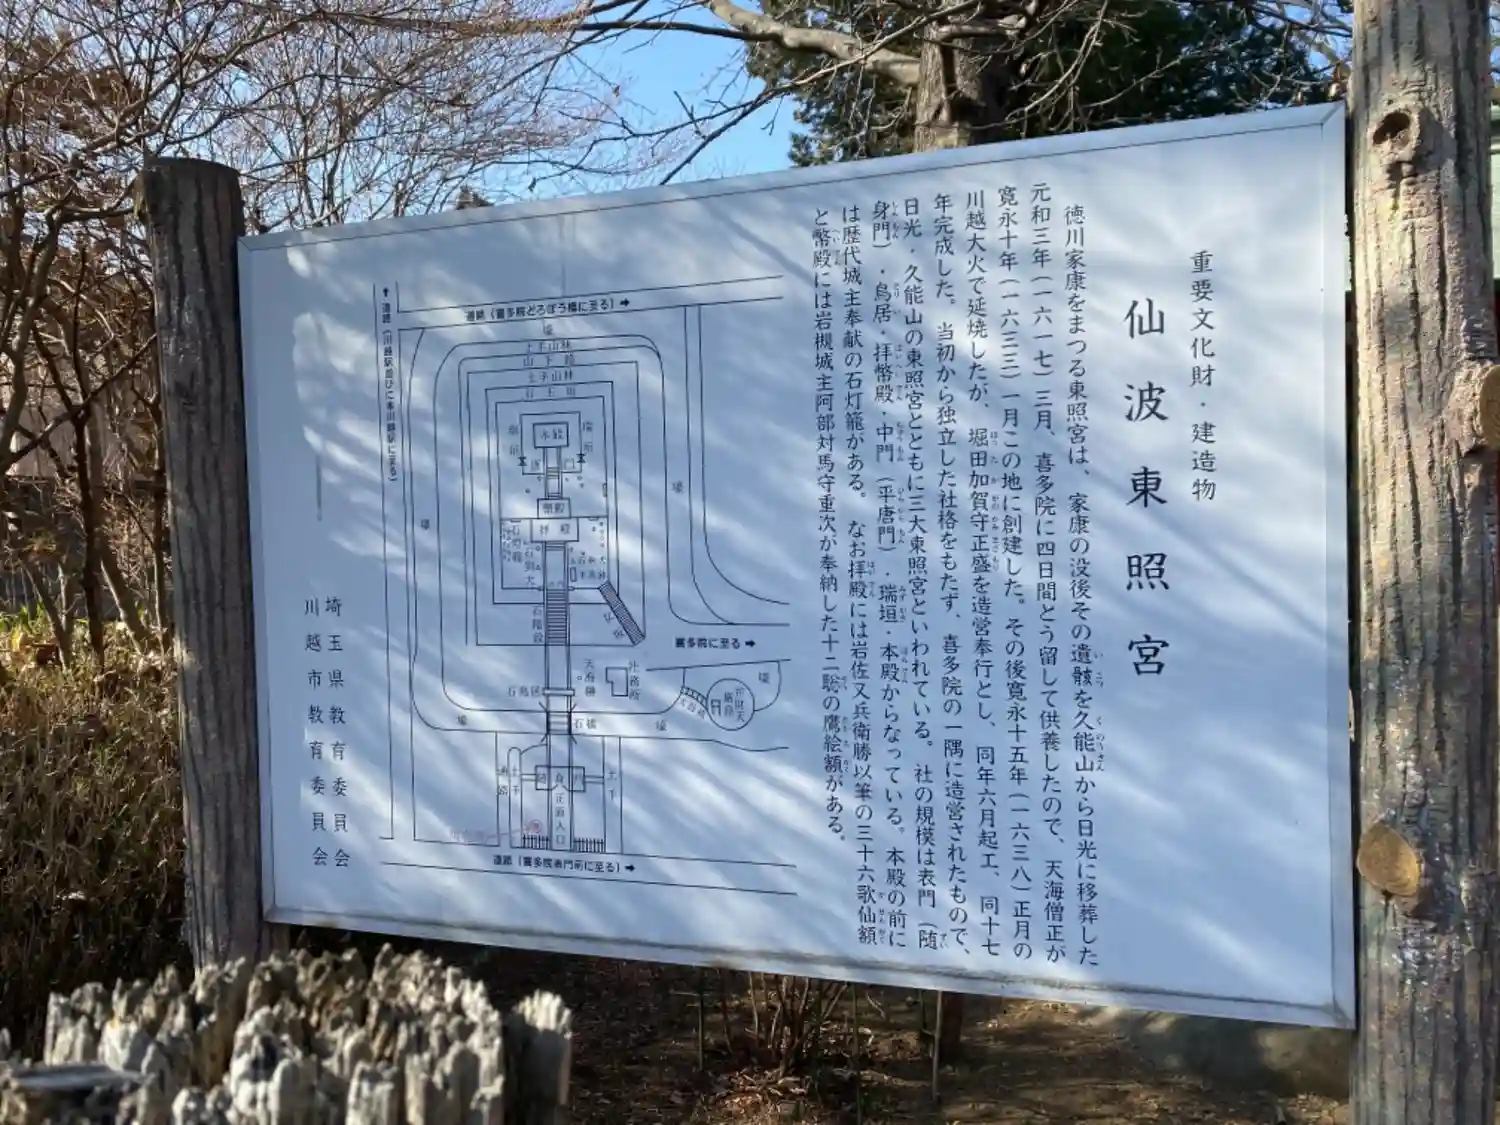 重要文化財・建造物
仙波東照宮
徳川家康をまつる東照宮は、家康の没後その遺骸を久能山から日光に移葬した
元和三年(一六一七)三月、喜多院に四日間とう留して供養したので、天海僧正が
寛永十年(一六三三)一月この地に創建した。その後寛永十五年(一六三八)正月の
川越大火で延焼したが、堀田加賀守正盛を造営奉行とし、同年六月起工、同十七
年完成した。当初から独立した社格をもたず、喜多院の一隅に造営されたもので、
日光・久能山の東照宮とともに三大東照宮といわれている。社の規模は表門(随
身門)・鳥居・拝幣殿・中門(平唐門)・瑞垣・本殿からなっている。本殿の前に
は歴代城主奉献の石灯籠がある。なお拝殿には岩佐又兵衛勝以筆の三十六歌仙額
と幣殿には岩槻城主阿部対馬守重次が奉納した十二聡の鷹絵額がある。
道路(喜多院どろぼう橋に至る)➡
道路(川越駅並びに本川越駅に至る)
濠
土手山林
山下路
土手山林
石玉垣
本殿
瑞垣
唐門
幣殿
拝殿
石階段
喜多院に至る➡
濠
濠
天海榊
社務所
石鳥居
石橋
濠
濠
濠
弁財天
厳島
随身門
土手
土手
道路
正面入口
道路(喜多院表門前に至る)➡
埼玉県教育委員会
川越市教育委員会